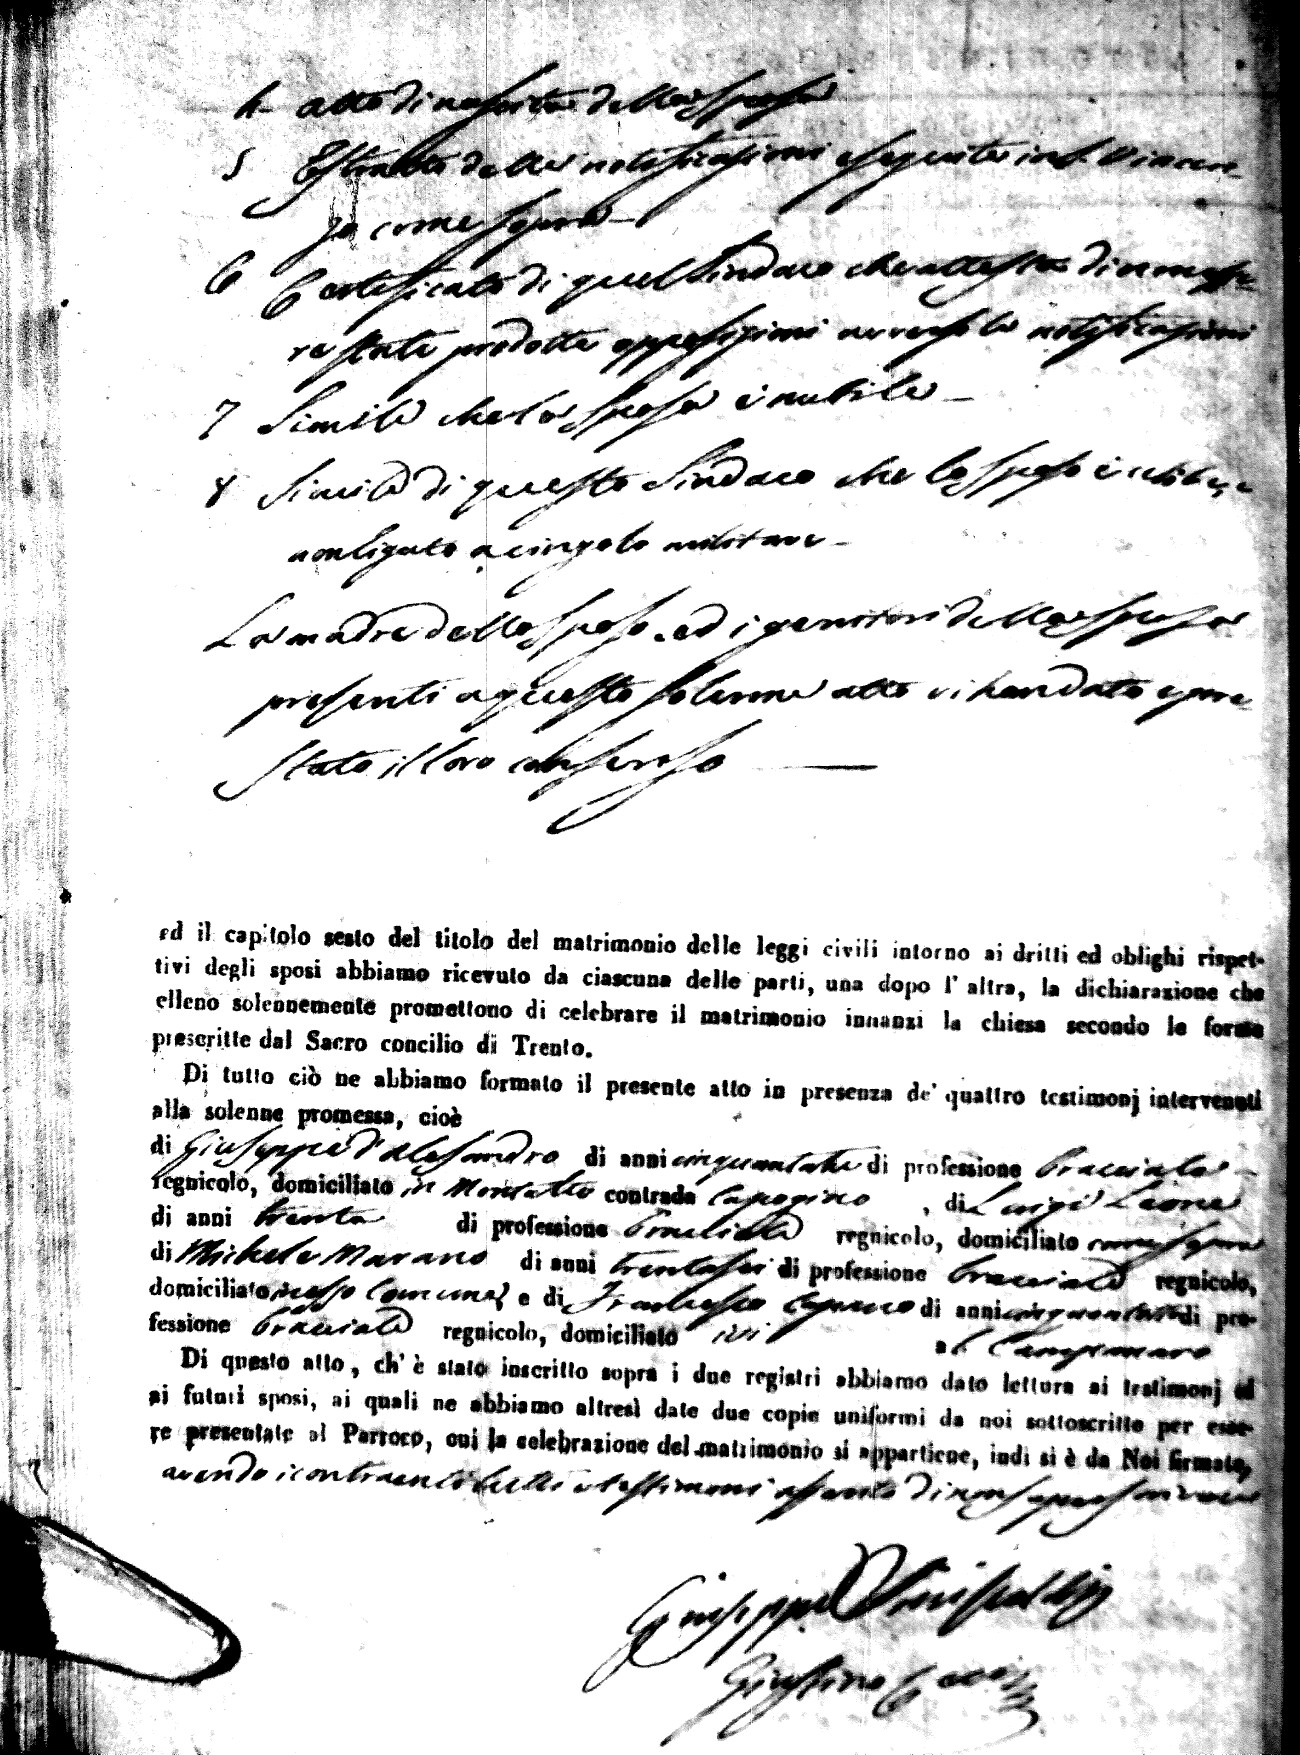 4 atto di nascita della sposa
5 Estratto delle notificazioni eseguite in S. Vincen-
zo come sopra-
6 Certificato di quel Sindaco che attesta di non esse-
re state prodotte opposizioni avverso le notificazioni
7 Simile che la sposa è nubile-
8 Simile di questo Sindaco che lo sposo è celibe, e
non ligato a cingolo militare-
La madre dello sposo, ed i genitori della sposa
presenti a questo solenne atto vi han dato e pre-
stato il loro consenso
ed il capitolo sesto del titolo del matrimonio delle leggi civili intorno ai dritti ed oblighi rispet-
tivi degli sposi abbiamo ricevuto da ciascuna delle parti, una dopo l'altra, la dichiarazione che
elleno solennemente promettono di celebrare il matrimonio innanzi la chiesa secondo le forme
prescritte dal Sacro concilio di Trento.
Di tutto ciò ne abbiamo formato il presente atto in presenza de' quattro testimonj intervenuti
alla solenne promessa, cioè
di Giuseppe d'Alesandro di anni di professione Bracciale
regnicolo, domiciliato in Montalto contrada Capogino, di Luigi Leone
di anni trenta di professione Bracciale regnicolo, domiciliato come sopra
di Michele Marano di anni trentasei di professione Bracciale regnicolo,
domiciliato nesso Comune, e di Francesco di anni di pro-
fessione Bracciale regnicolo, domiciliato ivi
Di questo atto, ch'è stato inscritto sopra i due registri abbiamo dato lettura ai testimonj ed
ai futuri sposi, ai quali ne abbiamo altresì date due copie uniformi da noi sottoscritte per esse-
re presentate al Parroco, cui la celebrazione del matrimonio si appartiene, indi si è da Noi firmato,
avendo i contraenti tutti e testimoni asserito di non saper scrivere
Giuseppe
Giustino